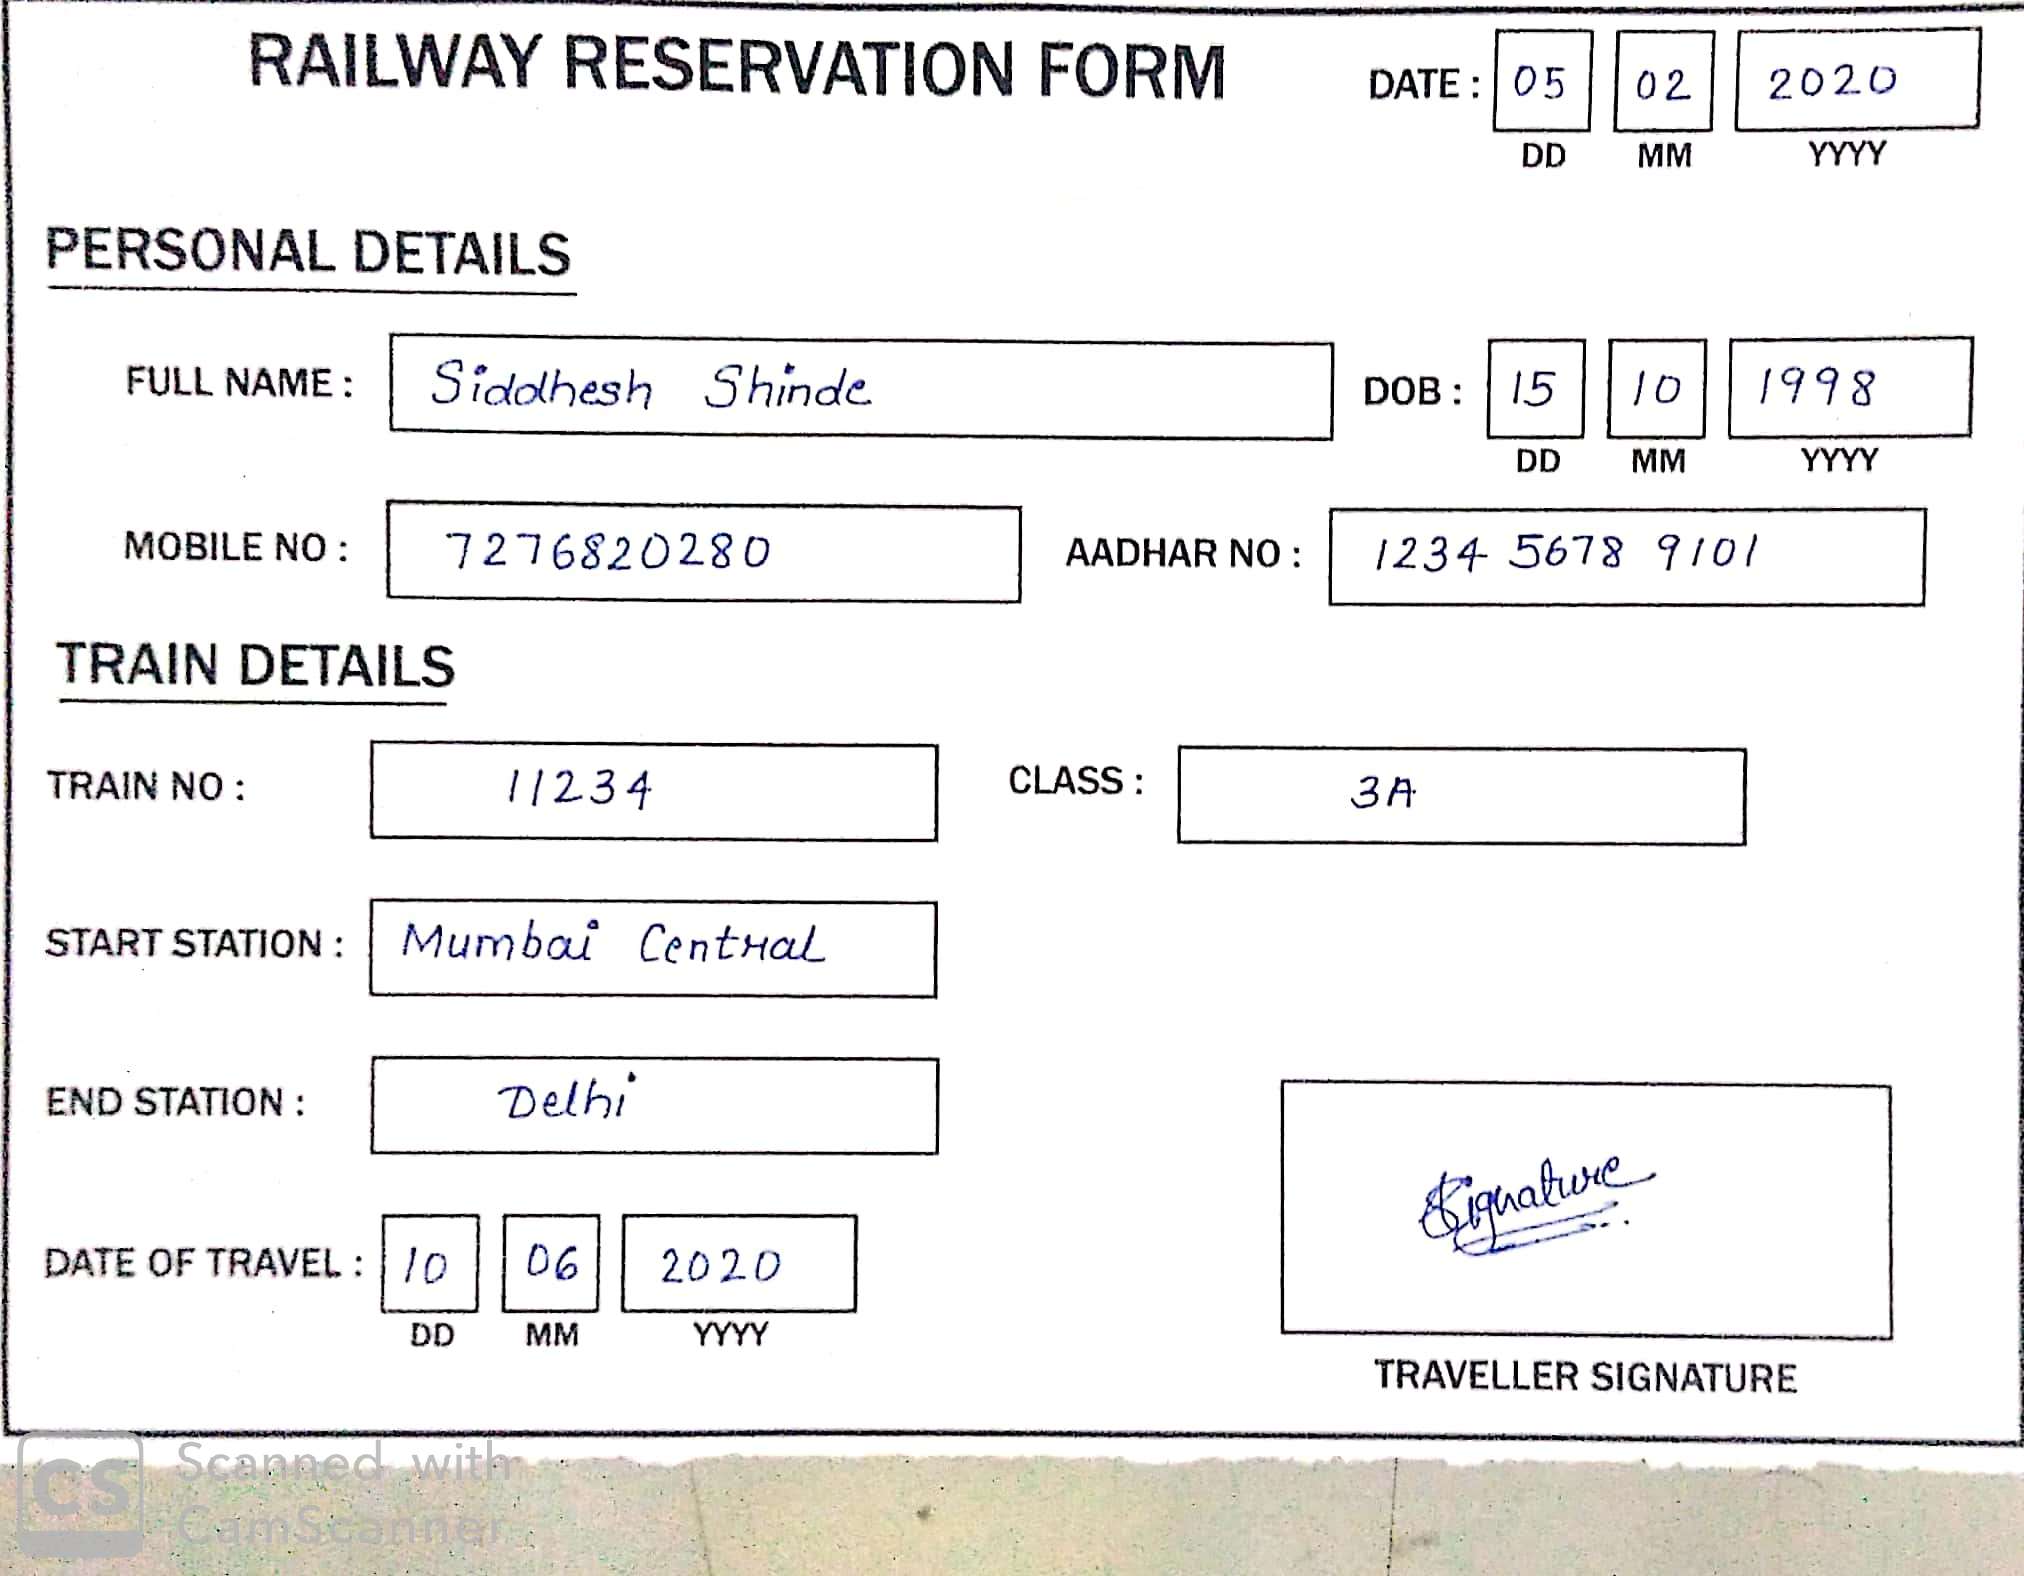 RAILWAY RESERVATION FORM DATE : 05 02 2020
DD MM YYYY
PERSONAL DETAILS
FULL NAME : Siddhesh Shinde DOB : 15 10 1998
DD MM YYYY
MOBILE NO : 7276820280 AADHAR NO : 1234 5678 9101
TRAIN DETAILS
TRAIN NO : 11234 CLASS : 3A
START STATION : Mumbai Central
END STATION : Delhi
Signature
DATE OF TRAVEL : 10 06 2020
DD MM YYYY
TRAVELLER SIGNATURE
CS Scanned with
CamScanner